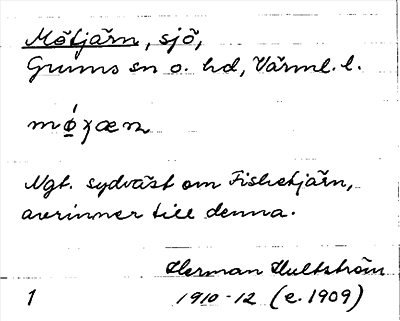 Mötjärn, sjö,
Grums sn o. hd, Värml. l.
Ngt. sydväst om Fisketjärn,
avrinner till denna.
Herman Hultström
1 1910-12 (e. 1909)